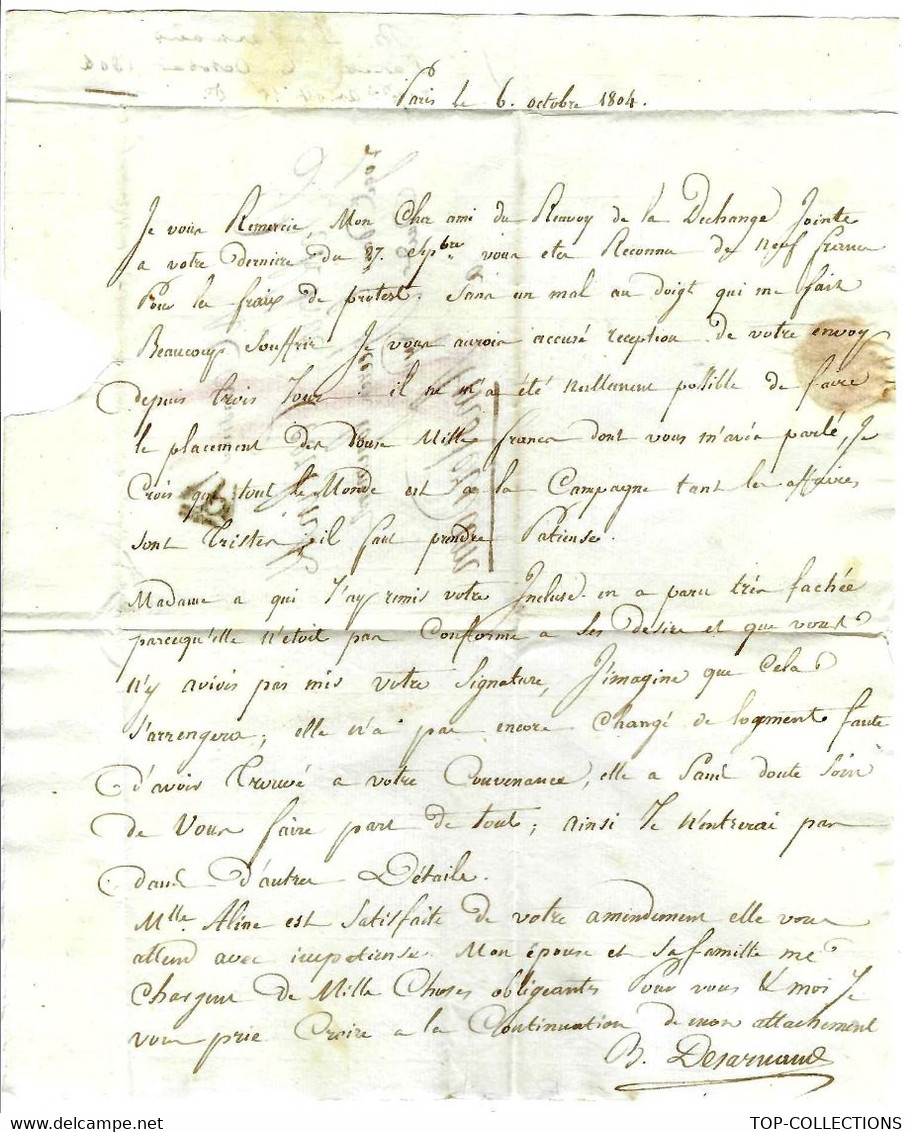 Paris le 6. octobre 1804.
Je vous Remercie, Mon Cher ami du Renvoy de la Dechange Jointe
a votre derniere du 27. Sepbre. vous etes Reconnu de neuf francs
Pour les fraix de protest. Sans un mal au doigt qui me fait
Beaucoup Souffrir Je vous aurois accusé reception de votre envoy
depuis trois Jour. il ne m'a été Nullement possible de faire
le placement des Douse Mille francs dont vous m'avés parlé, Je
Crois que tout le Monde est a la Campagne tant les affaires
sont Tristes, il faut prendre Patiense.
Madame a qui J'ay remis votre Incluse. en a paru trés fachée
parcequ'elle n'étoit pas Conforme a Ses desirs et que vous
n'y aviéz pas mis votre Signature, J'imagine que Cela
s'arrengera; elle n'a pas encore Changé de logment faute
D'avoir Trouvé a votre Convenance, elle a Sans doute Soin
de Vous faire part de tout; ainsi Je N'entrerai pas
dans d'autres Détails.
Mlle. Aline est Satisfaite de votre amendement elle vous
attend avec impatiense. Mon épouse et Sa famille me
Chargent de Mille Choses obligeantes Pour vous & moi Je
vous prie Croire a la Continuation de mon attachement
B. Desarnaud
TOP-COLLECTIONS